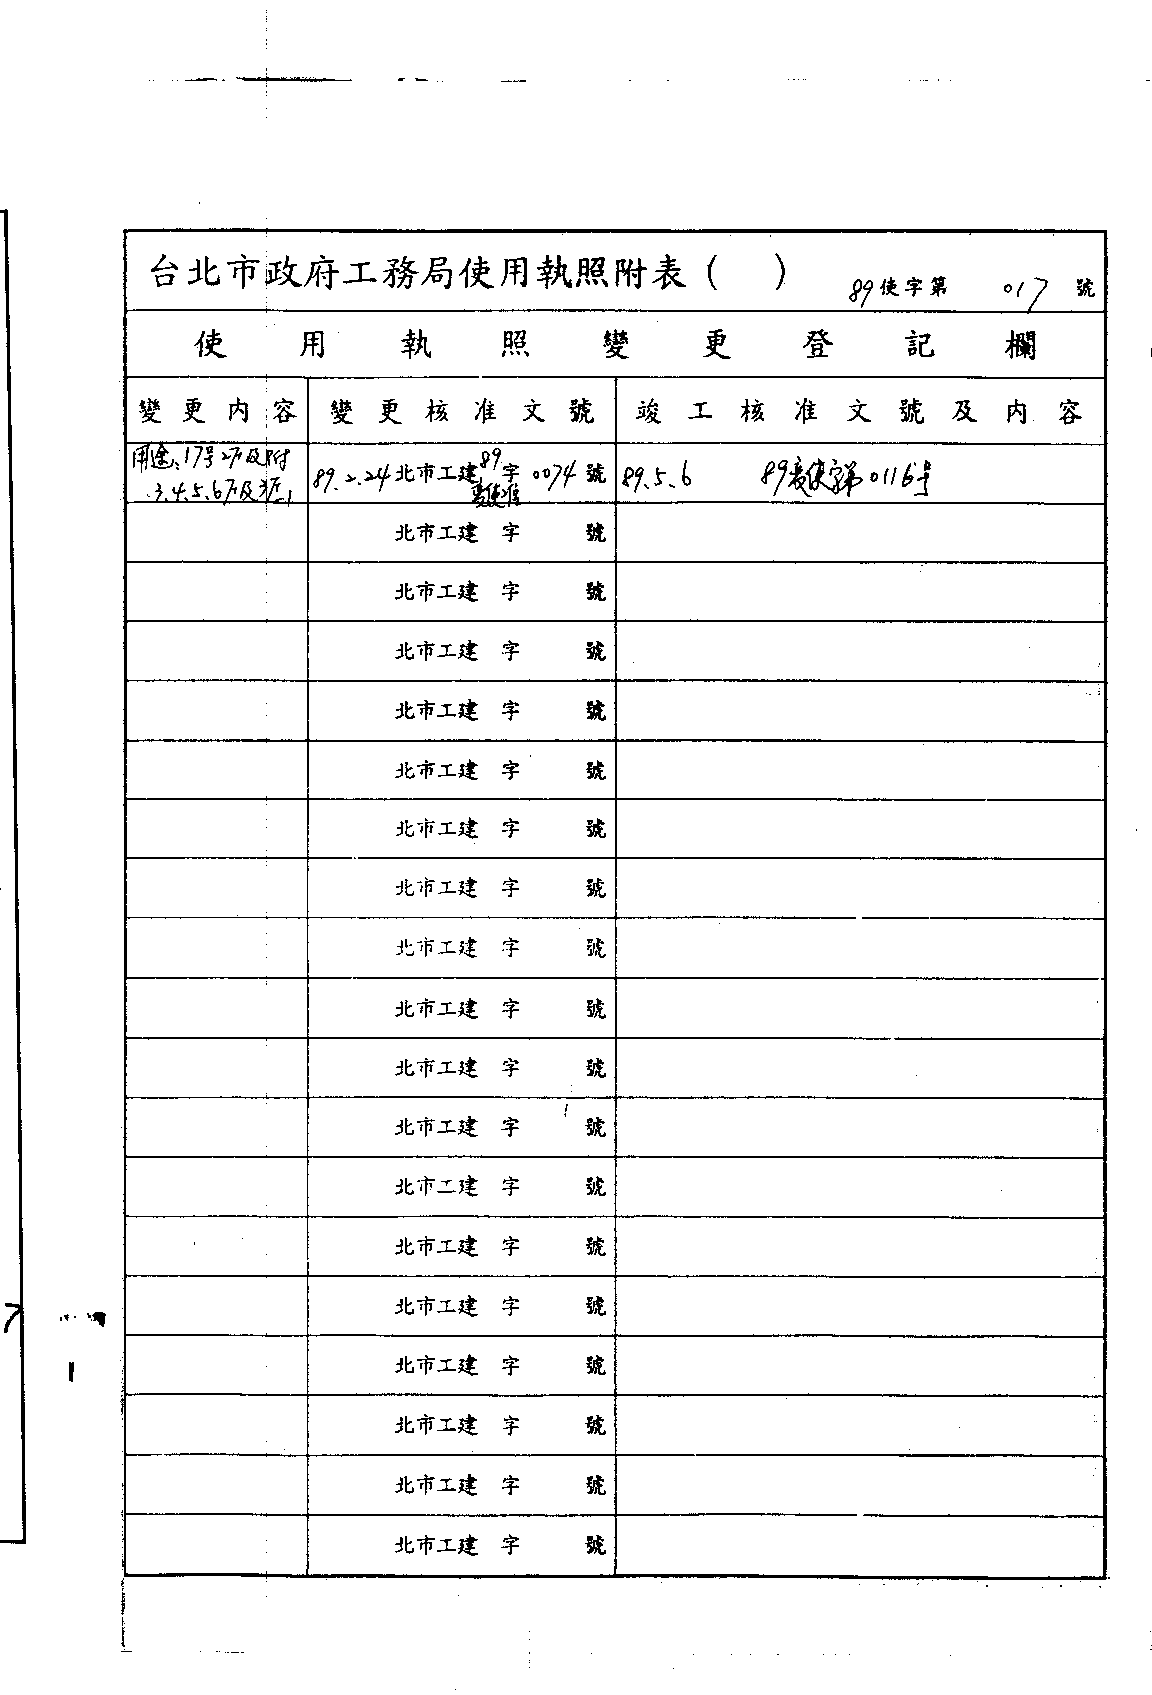 台北市政府工務局使用執照附表（　）　89使字第　017　號
使用執照變更登記欄
變更內容　變更核准文號　竣工核准文號及內容
用途:17号2F及附
3.4.5.6F及
89.2.24北市工建89變使准字0074號
89.5.6　89變使字第0116号
北市工建　字　號
北市工建　字　號
北市工建　字　號
北市工建　字　號
北市工建　字　號
北市工建　字　號
北市工建　字　號
北市工建　字　號
北市工建　字　號
北市工建　字　號
北市工建　字　號
北市工建　字　號
北市工建　字　號
北市工建　字　號
北市工建　字　號
北市工建　字　號
北市工建　字　號
北市工建　字　號